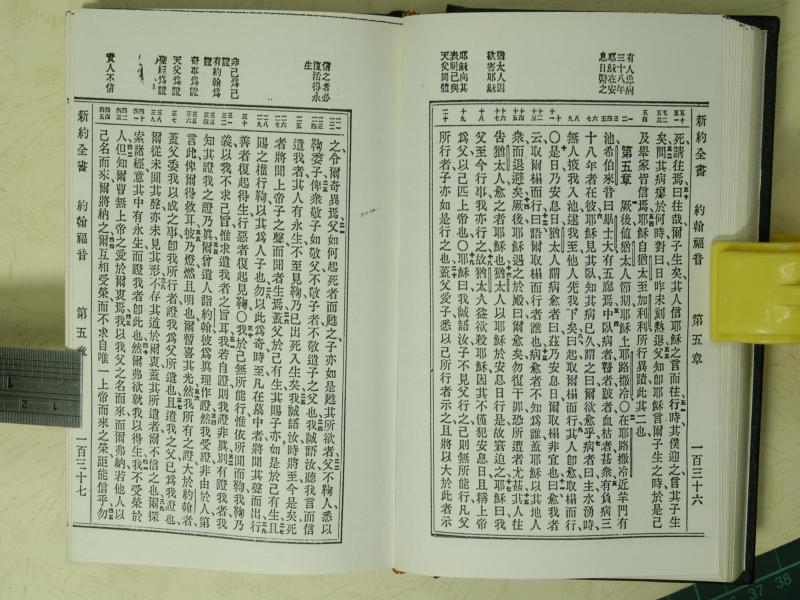 新約全書　約翰福音　第五章　一百三十六
有人患病
三十八年
耶穌在安
息日醫之
猶太人因
欲害耶穌
耶穌向其
表明己與
天父同體
死請往焉曰往哉爾子生矣其人信耶穌之言而往行時其僕迎之言其子生
矣問其病瘳於何時對曰日昨未刻熱退父知卽耶穌言爾子生之時於是己
及舉家皆信焉耶穌自猶太至加利利所行異蹟此其二也
第五章　厥後値猶太人節期耶穌上耶路撒冷〇在耶路撒冷近羊門有
池希伯來音曰畢士大有五廊焉中臥病者瞽者跛者血枯者甚衆有負病三
十八年者在彼耶穌見其臥知其病已久謂之曰爾欲愈乎病者曰主水湧時
無人扶我入池逮我至他人先我下矣曰起取爾榻而行其人卽愈取榻而行
〇是日乃安息日猶太人謂病愈者曰茲乃安息日取榻非宜也曰愈我者
云取爾榻而行曰語爾取榻而行者誰也病愈者不知爲誰蓋耶穌以其地人
衆而退避矣厥後耶穌遇之於殿曰爾愈矣勿復干罪恐所遭者尤甚其人往
告猶太人愈之者耶穌也猶太人以耶穌於安息日行是故窘迫之耶穌曰我
父至今行事我亦行之故猶太人益欲殺耶穌因其不僅犯安息日且稱上帝
爲父以己匹上帝也〇耶穌曰我誠語汝子不見父行之己則無所能行凡父
所行者子亦如是行之也蓋父愛子悉以己所行者示之且將以大於此者示
信之者必
復活得永
生
非己爲己
證
有約翰爲
證
奇事爲證
天父爲證
聖經爲證
責人不信
之令爾奇異焉父如何起死者而甦之子亦如是甦其所欲者父不鞫人悉以
鞫委子俾衆敬子如敬父不敬子者不敬遣子之父也我誠語汝聽我言而信
遣我者其人有永生不至見鞫乃已出死入生矣我誠語汝時將至今是矣死
者將聞上帝子之聲而聞者生焉蓋父於己有生其賜子亦如是於己有生且
賜之權行鞫以其爲人子也勿以此爲奇時至凡在墓中者將聞其聲而出行
善者復起得生行惡者復起見鞫〇我於己無所能行惟依所聞而鞫我鞫乃
義以我不求己旨惟求遣我者之旨耳我若自證則我證非眞別有證者我我
知其證我之證乃眞爾曾遣人詣約翰彼爲眞理作證然我受證非由於人第
言此俾爾得救耳彼乃燈燃且明也爾暫喜其光然我所有之證大於約翰者
蓋父委我以成之事卽我所行者證我爲父所遣也且遣我之父已爲我證也
爾從未聞其聲亦未見其形不存其道於爾衷蓋其所遣者爾不信之也爾探
索諸經意其中有永生而證我者卽此也然爾弗欲就我以得生我不受榮於
人但知爾曹無上帝之愛於爾衷焉我以我父之名而來而爾弗納若他人以
己名而來爾將納之爾互相受榮而不求自唯一上帝而來之榮詎能信乎勿
新約全書　約翰福音　第五章　一百三十七
1
2
36
37
38